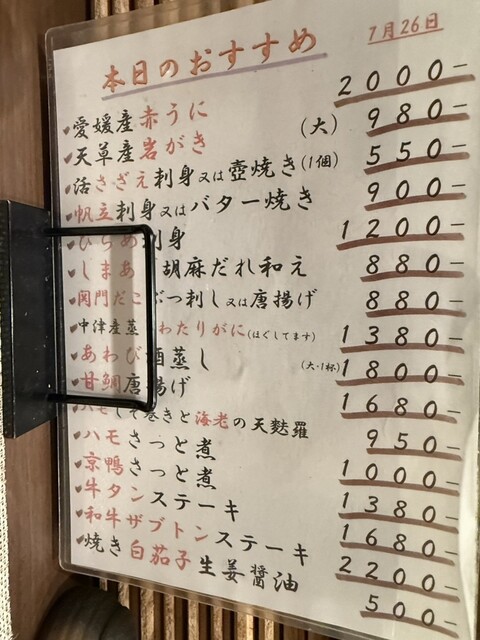 本日のおすすめ 7月26日
愛媛産赤うに 2000-
天草産岩がき (大) 980-
活さざえ刺身又は壺焼き(1個) 550-
帆立刺身又はバター焼き 900-
ひらめ刺身 1200-
しまあ 胡麻だれ和え 880-
関門だこぶつ刺し又は唐揚げ 880-
中津産蒸 わたりがに(ほぐしてます) 1380-
あわび酒蒸し (大・1杯) 1800-
甘鯛唐揚げ 1680-
ハモしそ巻きと海老の天麩羅 950-
ハモさっと煮 1000-
京鴨さっと煮 1380-
牛タンステーキ 1680-
和牛ザブトンステーキ 2200-
焼き白茄子生姜醤油 500-